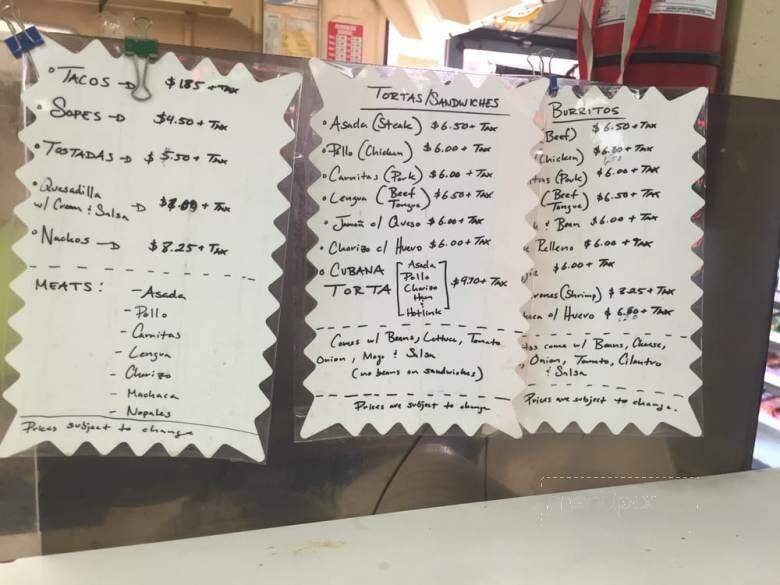 TACOS → $1.85 + TAX
SOPES → $4.50 + TAX
TOSTADAS → $5.50 + TAX
Quesadilla
w/ Cream & Salsa → + TAX
NACHOS → $8.25 + TAX
MEATS:
- ASADA
- Pollo
- Carnitas
- Lengua
- Chorizo
- Machaca
- Nopales
Prices subject to change
TORTAS/SANDWICHES
Asada (Steak) $6.50 + TAX
Pollo (Chicken) $6.00 + TAX
Carnitas (Pork) $6.00 + TAX
Lengua (Beef Tongue) $6.50 + TAX
Jamón c/ Queso $6.00 + TAX
Chorizo c/ Huevo $6.00 + TAX
CUBANA TORTA $9.70 + TAX
Asada
Pollo
Chorizo
Ham
&
Hotlink
Comes w/ Beans, Lettuce, Tomato
Onion, Mayo & Salsa
(no beans on sandwiches)
Prices are subject to change
BURRITOS
Beef) $6.50 + TAX
(Chicken) $6.00 + TAX
(Pork) $6.00 + TAX
(Beef Tongue) $6.50 + TAX
& Bean $6.00 + TAX
Relleno $6.00 + TAX
$6.00 + TAX
(Shrimp) $8.25 + TAX
c/ Huevo + TAX
come w/ Beans, Cheese,
Onion, Tomato, Cilantro
& Salsa
Prices are subject to change.